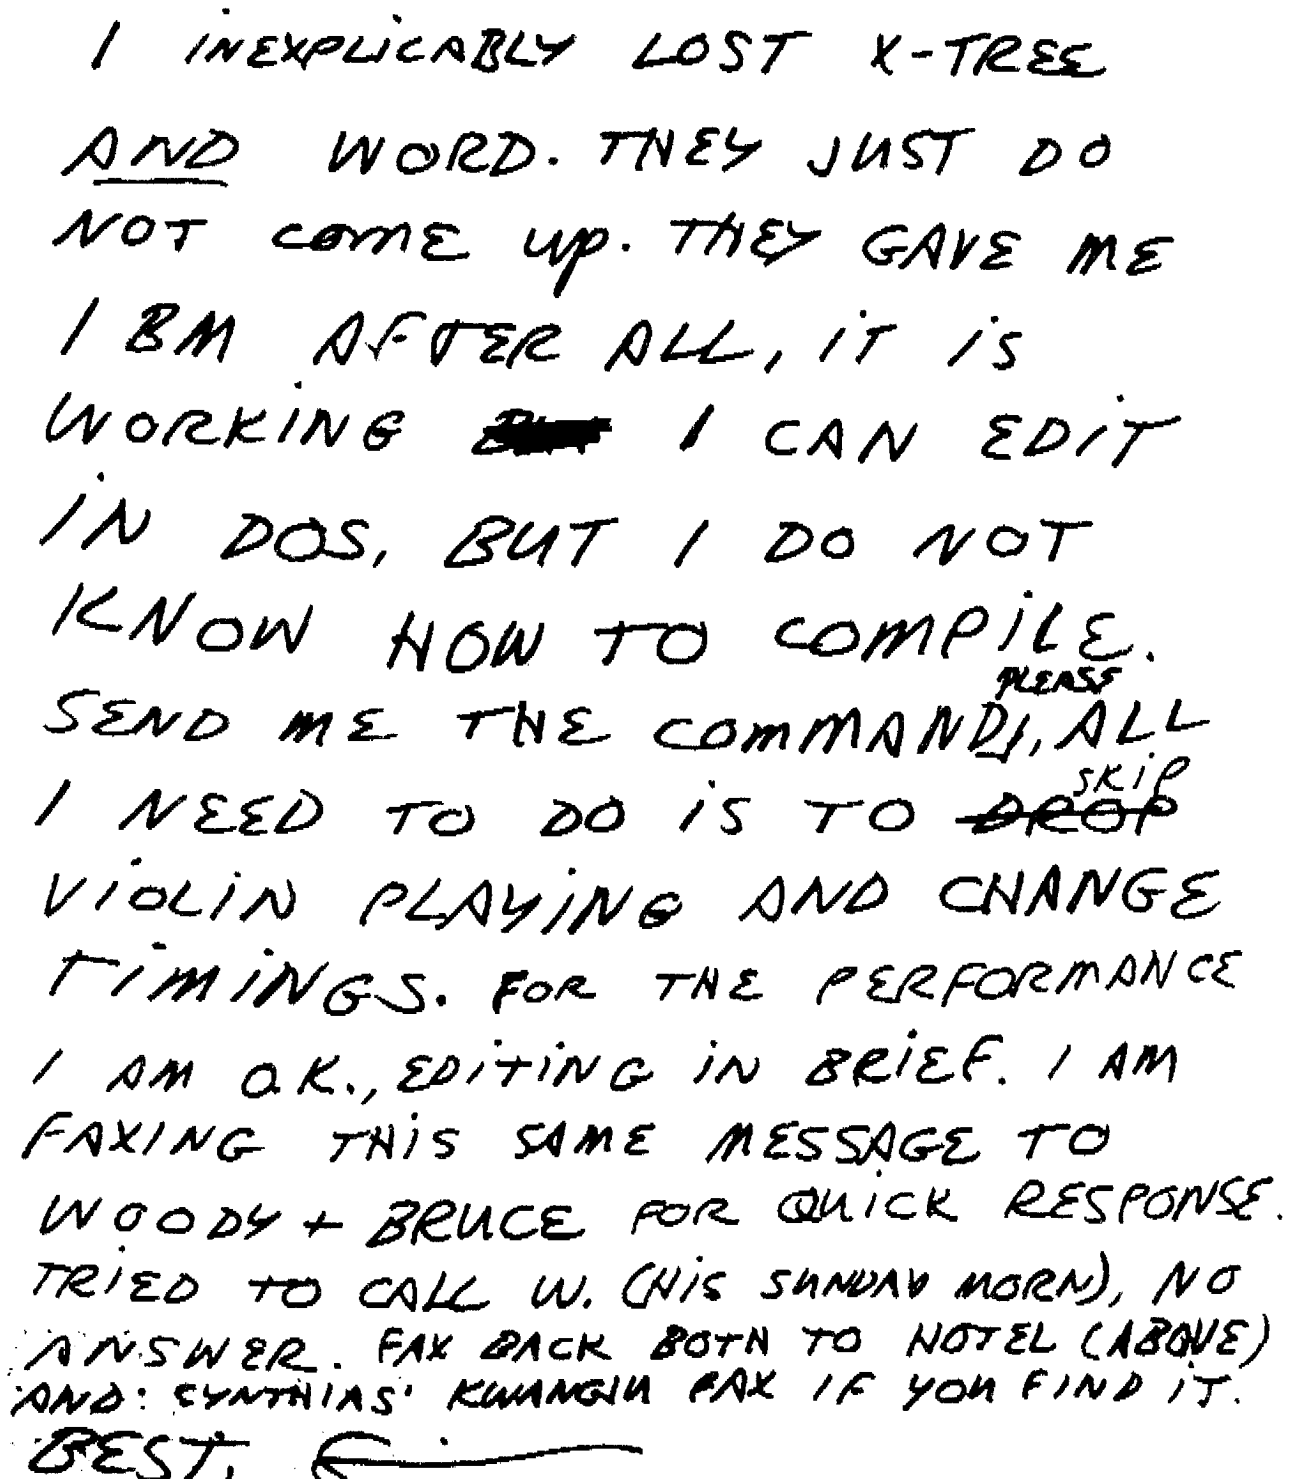 I INEXPLICABLY LOST X-TREE
AND WORD. THEY JUST DO
NOT COME UP. THEY GAVE ME
IBM AFTER ALL, IT IS
WORKING I CAN EDIT
IN DOS, BUT I DO NOT
KNOW HOW TO COMPILE.
PLEASE
SEND ME THE COMMANDS, ALL
SKIP
I NEED TO DO IS TO DROP
VIOLIN PLAYING AND CHANGE
TIMINGS. FOR THE PERFORMANCE
I AM O.K., EDITING IN BRIEF. I AM
FAXING THIS SAME MESSAGE TO
WOODY + BRUCE FOR QUICK RESPONSE.
TRIED TO CALL W. (HIS SUNDAY MORN), NO
ANSWER. FAX BACK BOTH TO HOTEL (ABOVE)
AND: CYNTHIAS' KWANGJU FAX IF YOU FIND IT.
BEST,